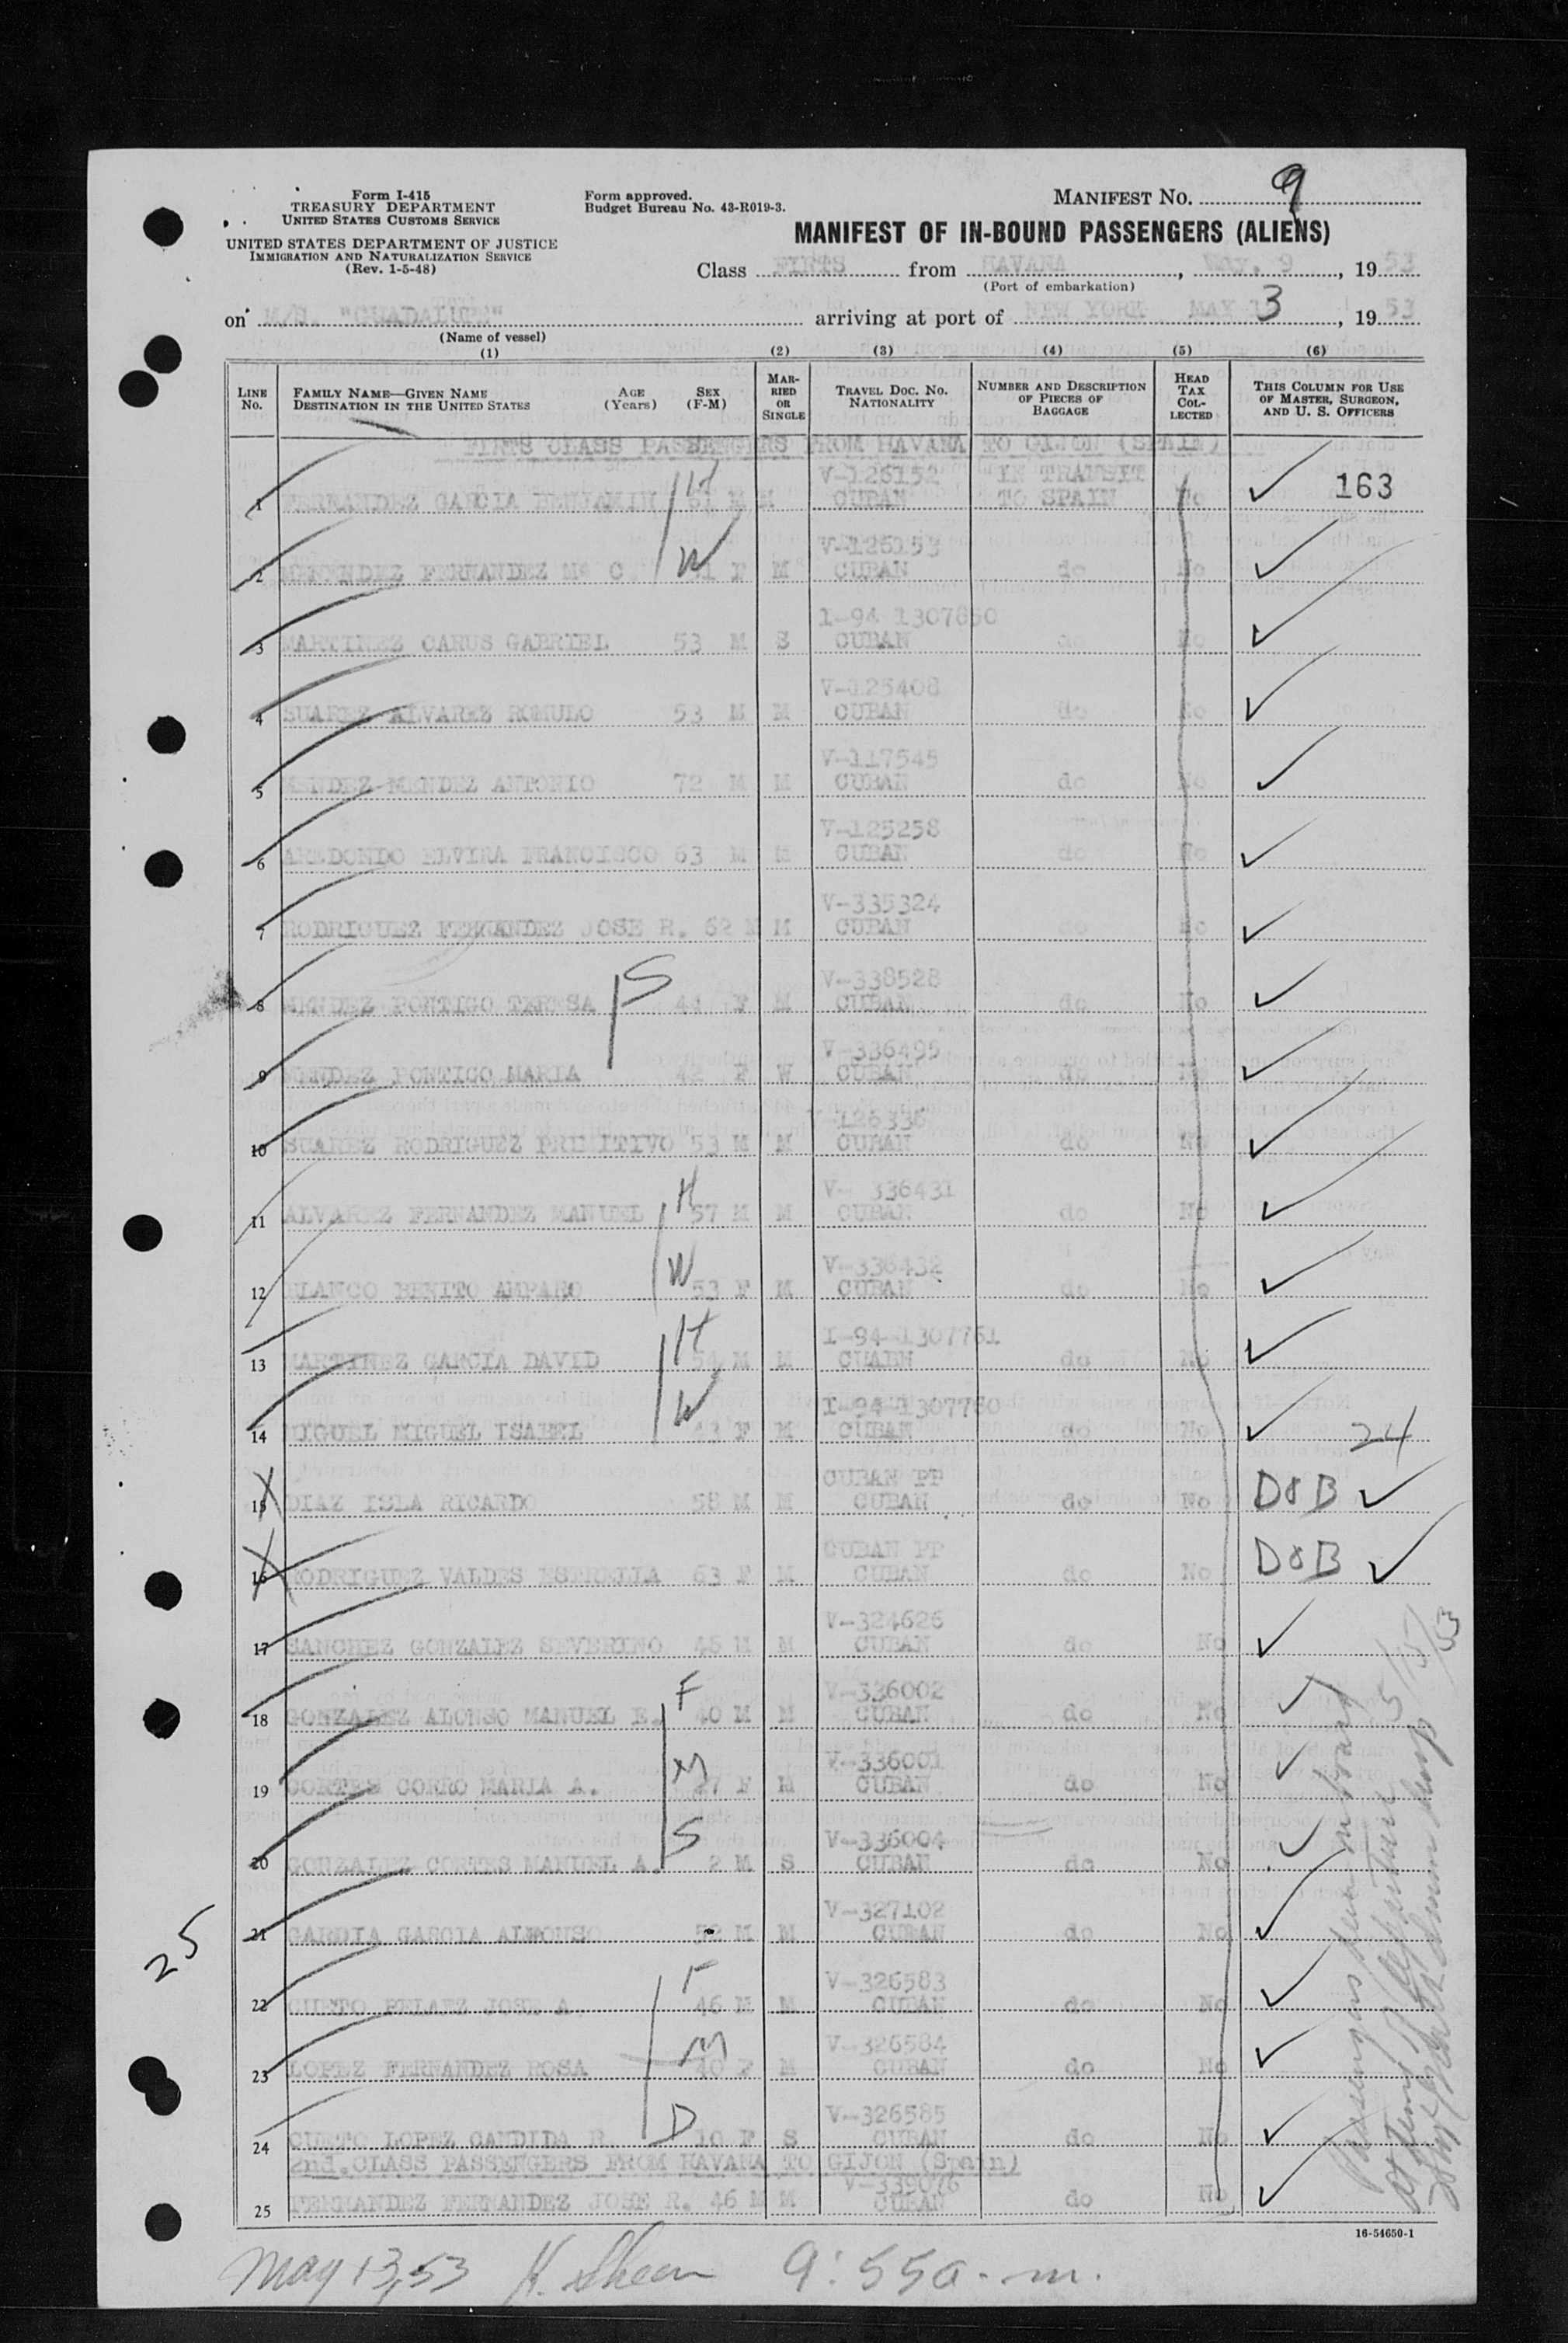 Form I-415
TREASURY DEPARTMENT
UNITED STATES CUSTOMS SERVICE
UNITED STATES DEPARTMENT OF JUSTICE
IMMIGRATION AND NATURALIZATION SERVICE
(Rev. 1-5-48)
Form approved.
Budget Bureau No. 43-R019-3.
MANIFEST NO. 9
MANIFEST OF IN-BOUND PASSENGERS (ALIENS)
Class FIRTS from HAVANA, MAY. 9, 1953
(Port of embarkation)
on M/N. "GUADALUPE" arriving at port of NEW YORK MAY 13, 1953
(Name of vessel)
(1) (2) (3) (4) (5) (6)
LINE No. FAMILY NAME—GIVEN NAME DESTINATION IN THE UNITED STATES AGE (Years) SEX (F-M) MARRIED OR SINGLE TRAVEL DOC. NO. NATIONALITY NUMBER AND DESCRIPTION OF PIECES OF BAGGAGE HEAD TAX COLLECTED THIS COLUMN FOR USE OF MASTER, SURGEON, AND U. S. OFFICERS
FIRTS CLASS PASSENGERS FROM HAVANA TO GIJON (SPAIN)
V-126152 IN TRANSIT
1 FERNANDEZ GARCIA BENJAMIN H 61 M M CUBAN TO SPAIN No ✓ 163
V-126153
2 MENENDEZ FERNANDEZ Mª C W 41 F M CUBAN do No ✓
I-94 1307850
3 MARTINEZ CARUS GABRIEL 53 M S CUBAN do No ✓
V-125408
4 SUAREZ ALVAREZ ROMULO 53 M M CUBAN do No ✓
V-117545
5 MENDEZ MENDEZ ANTONIO 72 M M CUBAN do No ✓
V-125258
6 AREDONDO ELVIRA FRANCISCO 63 M M CUBAN do No ✓
V-335324
7 RODRIGUEZ FERNANDEZ JOSE R. 62 M M CUBAN do No ✓
V-338528
8 MENDEZ PONTIGO TERESA S 44 F M CUBAN do No ✓
V-336495
9 MENDEZ PONTIGO MARIA 42 F W CUBAN do No ✓
V-126336
10 SUAREZ RODRIGUEZ PRIMITIVO 53 M M CUBAN do No ✓
V- 336431
11 ALVAREZ FERNANDEZ MANUEL H 57 M M CUBAN do No ✓
V-336432
12 BLANCO BENITO AMPARO W 53 F M CUBAN do No ✓
I-94-1307761
13 MARTINEZ GARCIA DAVID H 54 M M CUABN do No ✓
I-94-1307760
14 MIGUEL MIGUEL ISABEL W 43 F M CUBAN do No ✓ 24
CUBAN PP
15 DIAZ ISLA RICARDO 58 M M CUBAN do No DOB ✓
CUBAN PP
16 RODRIGUEZ VALDES ESTRELLA 63 F M CUBAN do No DOB ✓
V-324626
17 SANCHEZ GONZALEZ SEVERINO 45 M M CUBAN do No ✓
V-336002
18 GONZALEZ ALONSO MANUEL E. F 40 M M CUBAN do No ✓
V-336001
19 CORTES CORRO MARIA A. M 27 F M CUBAN do No ✓
V-336004
20 GONZALEZ CORTES MANUEL A. S 2 M S CUBAN do No ✓
V-327102
21 GARDIA GARCIA ALFONSO 52 M M CUBAN do No ✓
V-326583
22 CUETO PELAEZ JOSE A F 46 M M CUBAN do No ✓
V-326584
23 LOPEZ FERNANDEZ ROSA M 40 F M CUBAN do No ✓
V-326585
24 CUETO LOPEZ CANDIDA R. D 10 F S CUBAN do No ✓
2nd. CLASS PASSENGERS FROM HAVANA TO GIJON (Spain)
V-339076
25 FERNANDEZ FERNANDEZ JOSE R. 46 M M CUBAN do No ✓
25
Passengers seen on board
at time of departure 5/15/53
16-54650-1
May 13, 53 K. Sheen 9:55 a.m.